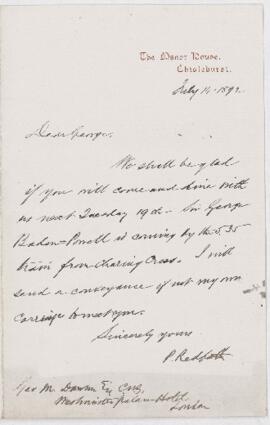 The Manor House,
Chislehurst.
July 14 1892
Dear George,
We shall be glad
if you will come and dine with
us next Tuesday 19th - Sir George
Baden-Powell is coming by the 5.35
train from Charing Cross. I will
send a conveyance if not my own
carriage to meet you.
Sincerely yours
P. Redpath
Geo M. Dawson Esq CMG,
Westminster Palace Hotel
London